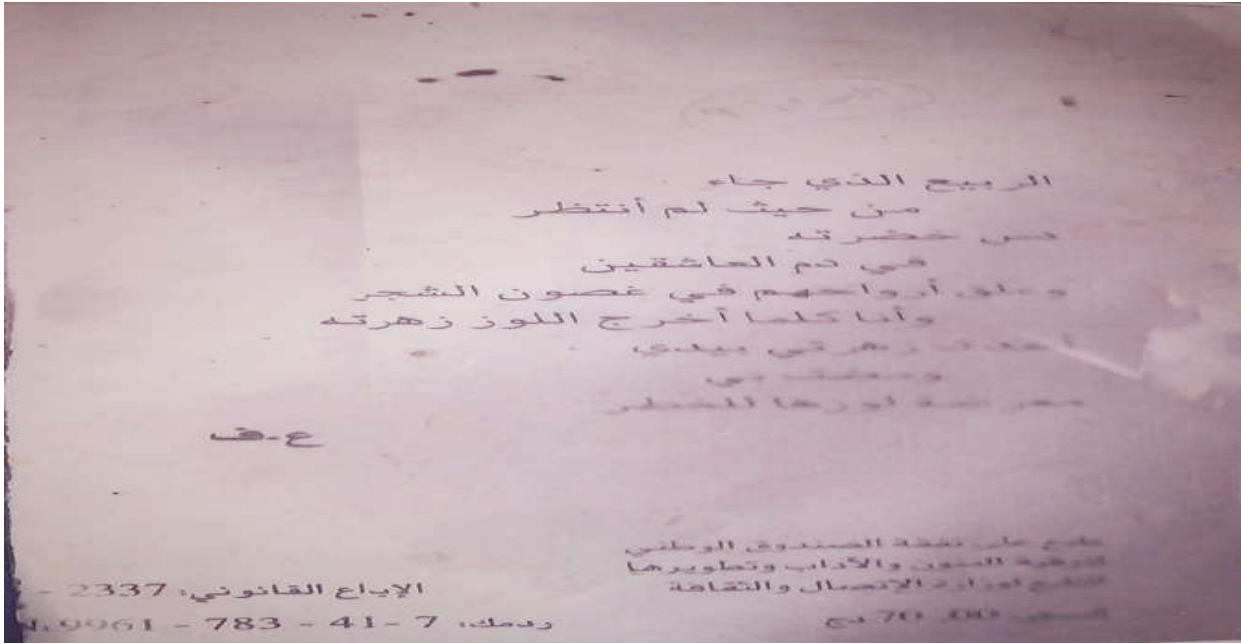 الربيع الذي جاء
من حيث لم أنتظر
دس خضرته
في دم العاشقين
وعلق أرواحهم في غصون الشجر
وأنا كلما أخرج اللوز زهرته
زهرتي بيدي
ومضت بي
لوزها للخطر
ع-ف
طبع على نفقة الصندوق الوطني
لترقية الفنون والآداب وتطويرها
التابع لوزارة الإتصال والثقافة
الإيداع القانوني: 2337 -
السعر: 00, 70 دج
ردمك: 7 - 41 - 783 - 9961